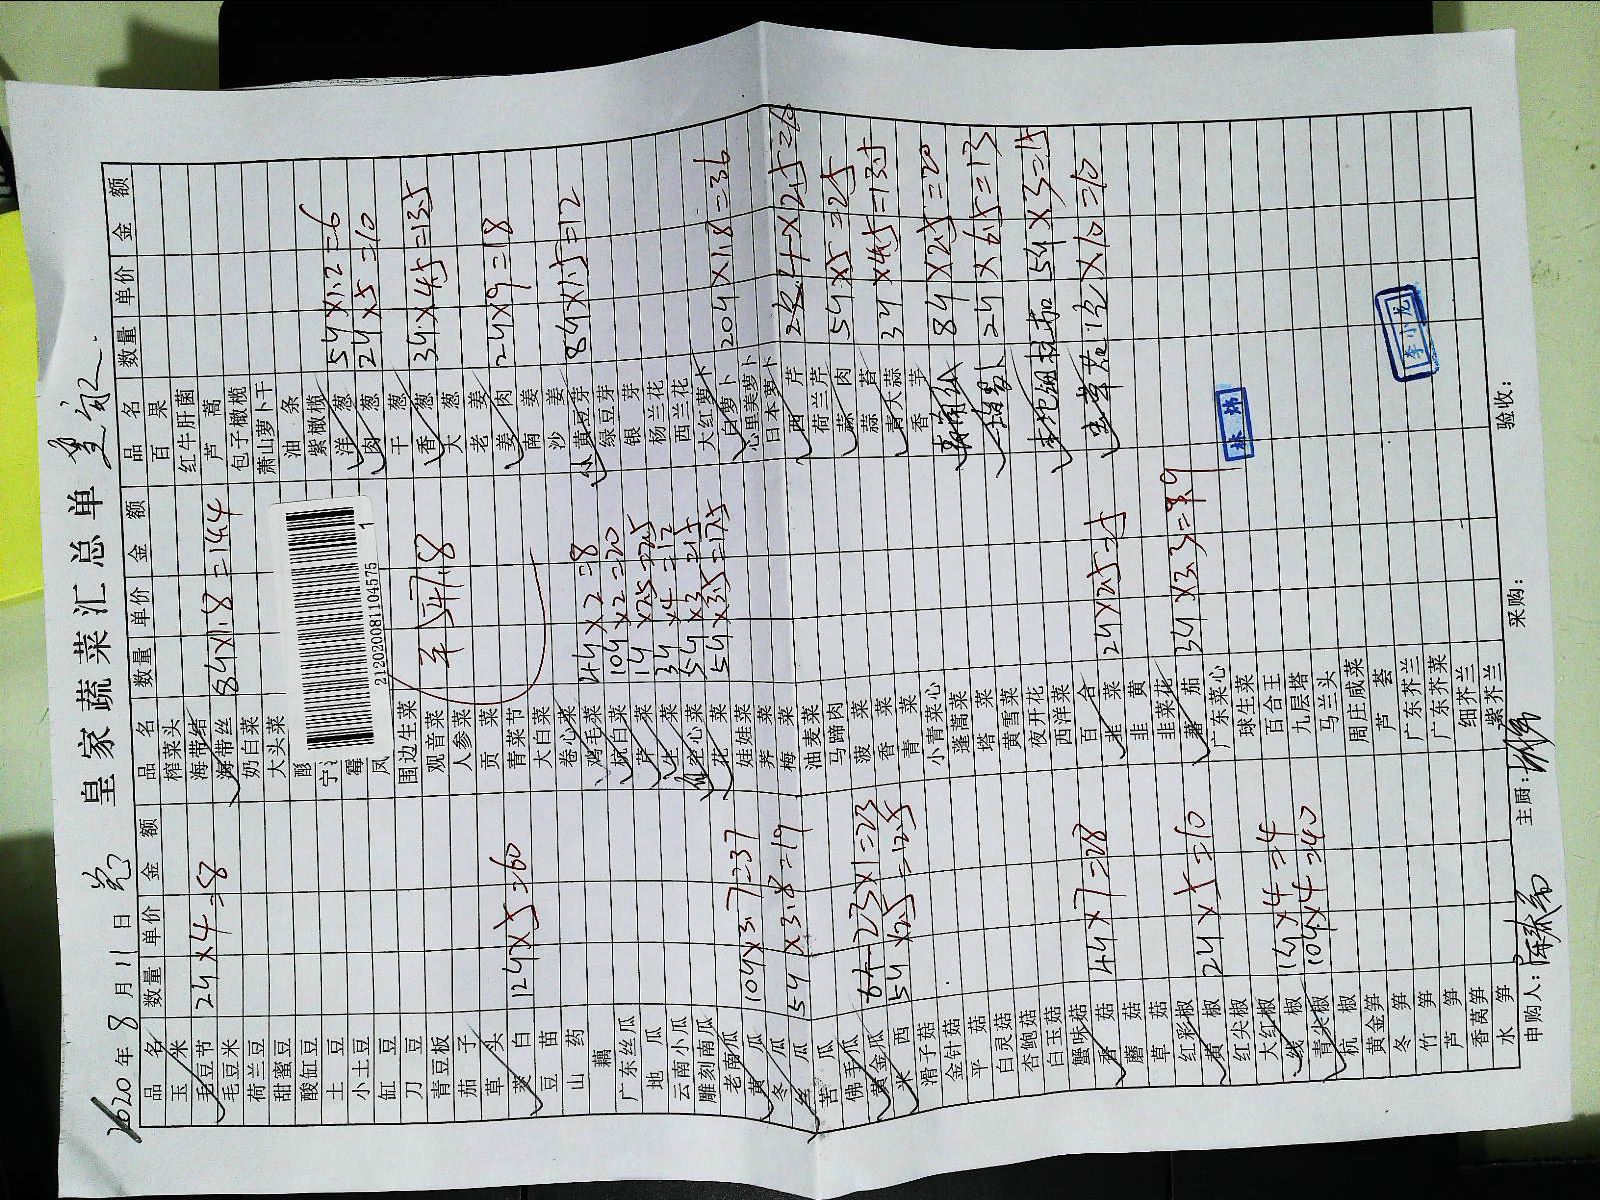 皇家蔬菜汇总单
2020年8月11日
品名 数量 单价 金额
玉米
毛豆节 24×4=8
毛豆米
荷兰豆
甜蜜豆
酸缸豆
土豆
小土豆
缸豆
刀豆
青豆板
茄子
草头
茭白 124×5=60
豆苗
山药
藕
广东丝瓜
地瓜
云南小瓜
雕刻南瓜
老南瓜
黄瓜 104×3.7=37
冬瓜
丝瓜 54×3.8=19
苦瓜
佛手瓜
黄金瓜 23×1=23
米西 54×2.5=12.5
滑子菇
金针菇
平菇
白灵菇
杏鲍菇
白玉菇
蟹味菇
香菇 44×7=28
蘑菇
草菇
红彩椒
黄椒 24×5=10
红尖椒
大红椒
线椒 14×4=4
青尖椒 104×4=40
杭椒
黄金笋
冬笋
竹笋
芦笋
香莴笋
水笋
品名 数量 单价 金额
榨菜头
海带结
海带丝 84×1.8=14.4
奶白菜
大头菜
212020081104575
1
围边生菜
观音菜
人参菜
贡菜
青菜节
大白菜
卷心菜
鸡毛菜 44×2=8
杭白菜 104×2=20
芹菜 14×2.5=2.5
生菜 34×4=12
空心菜 54×3=15
花菜 54×3.5=17.5
娃娃菜
荠菜
梅菜
油麦菜
马蹄肉
菠菜
香菜
青菜
小青菜心
蓬蒿菜
塔菜
黄雪菜
夜开花
西洋菜
百合
韭菜 24×2.5=5
韭黄
韭菜花
蕃茄 34×3.3=9.9
广东菜心
球生菜
百合王
九层塔
马兰头
周庄咸菜
芦荟
广东芥兰
广东芥菜
细芥兰
紫芥兰
品名 数量 单价 金额
百果
红牛肝菌
芦蒿
包子橄榄
萧山萝卜干
油条
紫橄榄
洋葱 54×1.2=6
肉葱 24×5=10
干葱
香葱 34×4.5=13.5
大葱
老姜
姜肉 24×9=18
南姜
沙姜
黄豆芽 84×1.5=12
绿豆芽
银芽
杨兰花
西兰花
大红萝卜
白萝卜 204×1.8=36
心里美萝卜
日本萝卜
西芹 ×2.5=60
荷兰芹
蒜肉 54×5=25
蒜苔
青大蒜 34×4.5=13.5
香芋
84×2.5=20
24×6.5=13
54×3=15
×10=10
林炜
李小龙
申购人:
主厨:
采购:
验收: